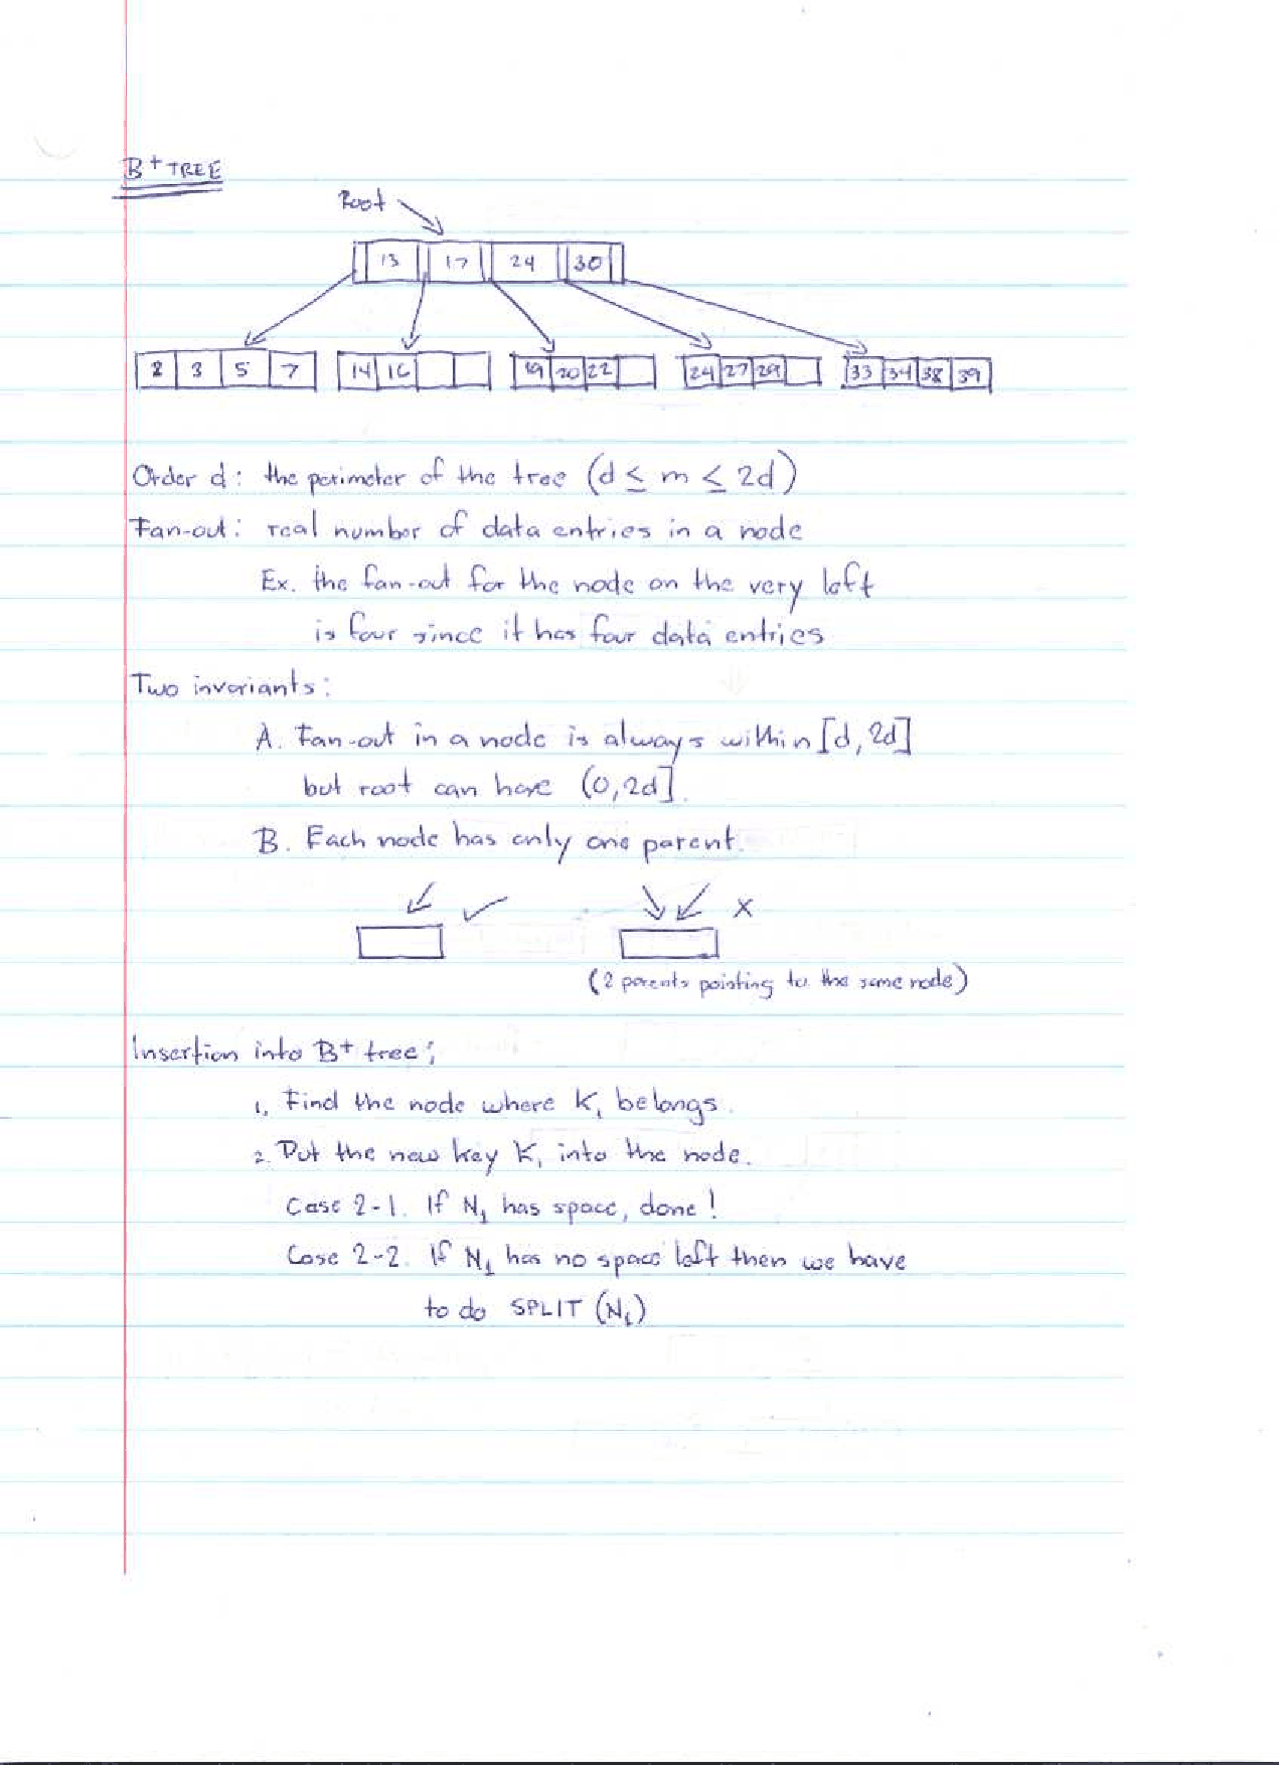 B+ TREE
Root
13 17 24 30
2 3 5 7 14 16 19 20 22 24 27 29 33 34 38 39
Order d: the perimeter of the tree (d ≤ m ≤ 2d)
Fan-out: real number of data entries in a node
Ex. the fan-out for the node on the very left
is four since it has four data entries
Two invariants:
A. Fan-out in a node is always within [d, 2d]
but root can have (0, 2d].
B. Each node has only one parent.
✓ x
(2 parents pointing to the same node)
Insertion into B+ tree;
1. Find the node where K₁ belongs.
2. Put the new key K₁ into the node.
Case 2-1. If N₁ has space, done!
Case 2-2. If N₁ has no space left then we have
to do SPLIT (N₁)